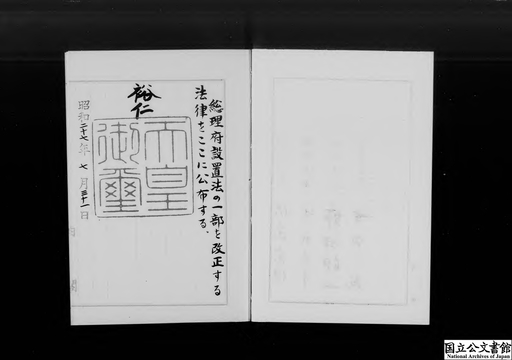 総理府設置法の一部を改正する
法律をここに公布する、
裕仁
天皇
御璽
昭和二十七年七月三十一日
国立公文書館
National Archives of Japan